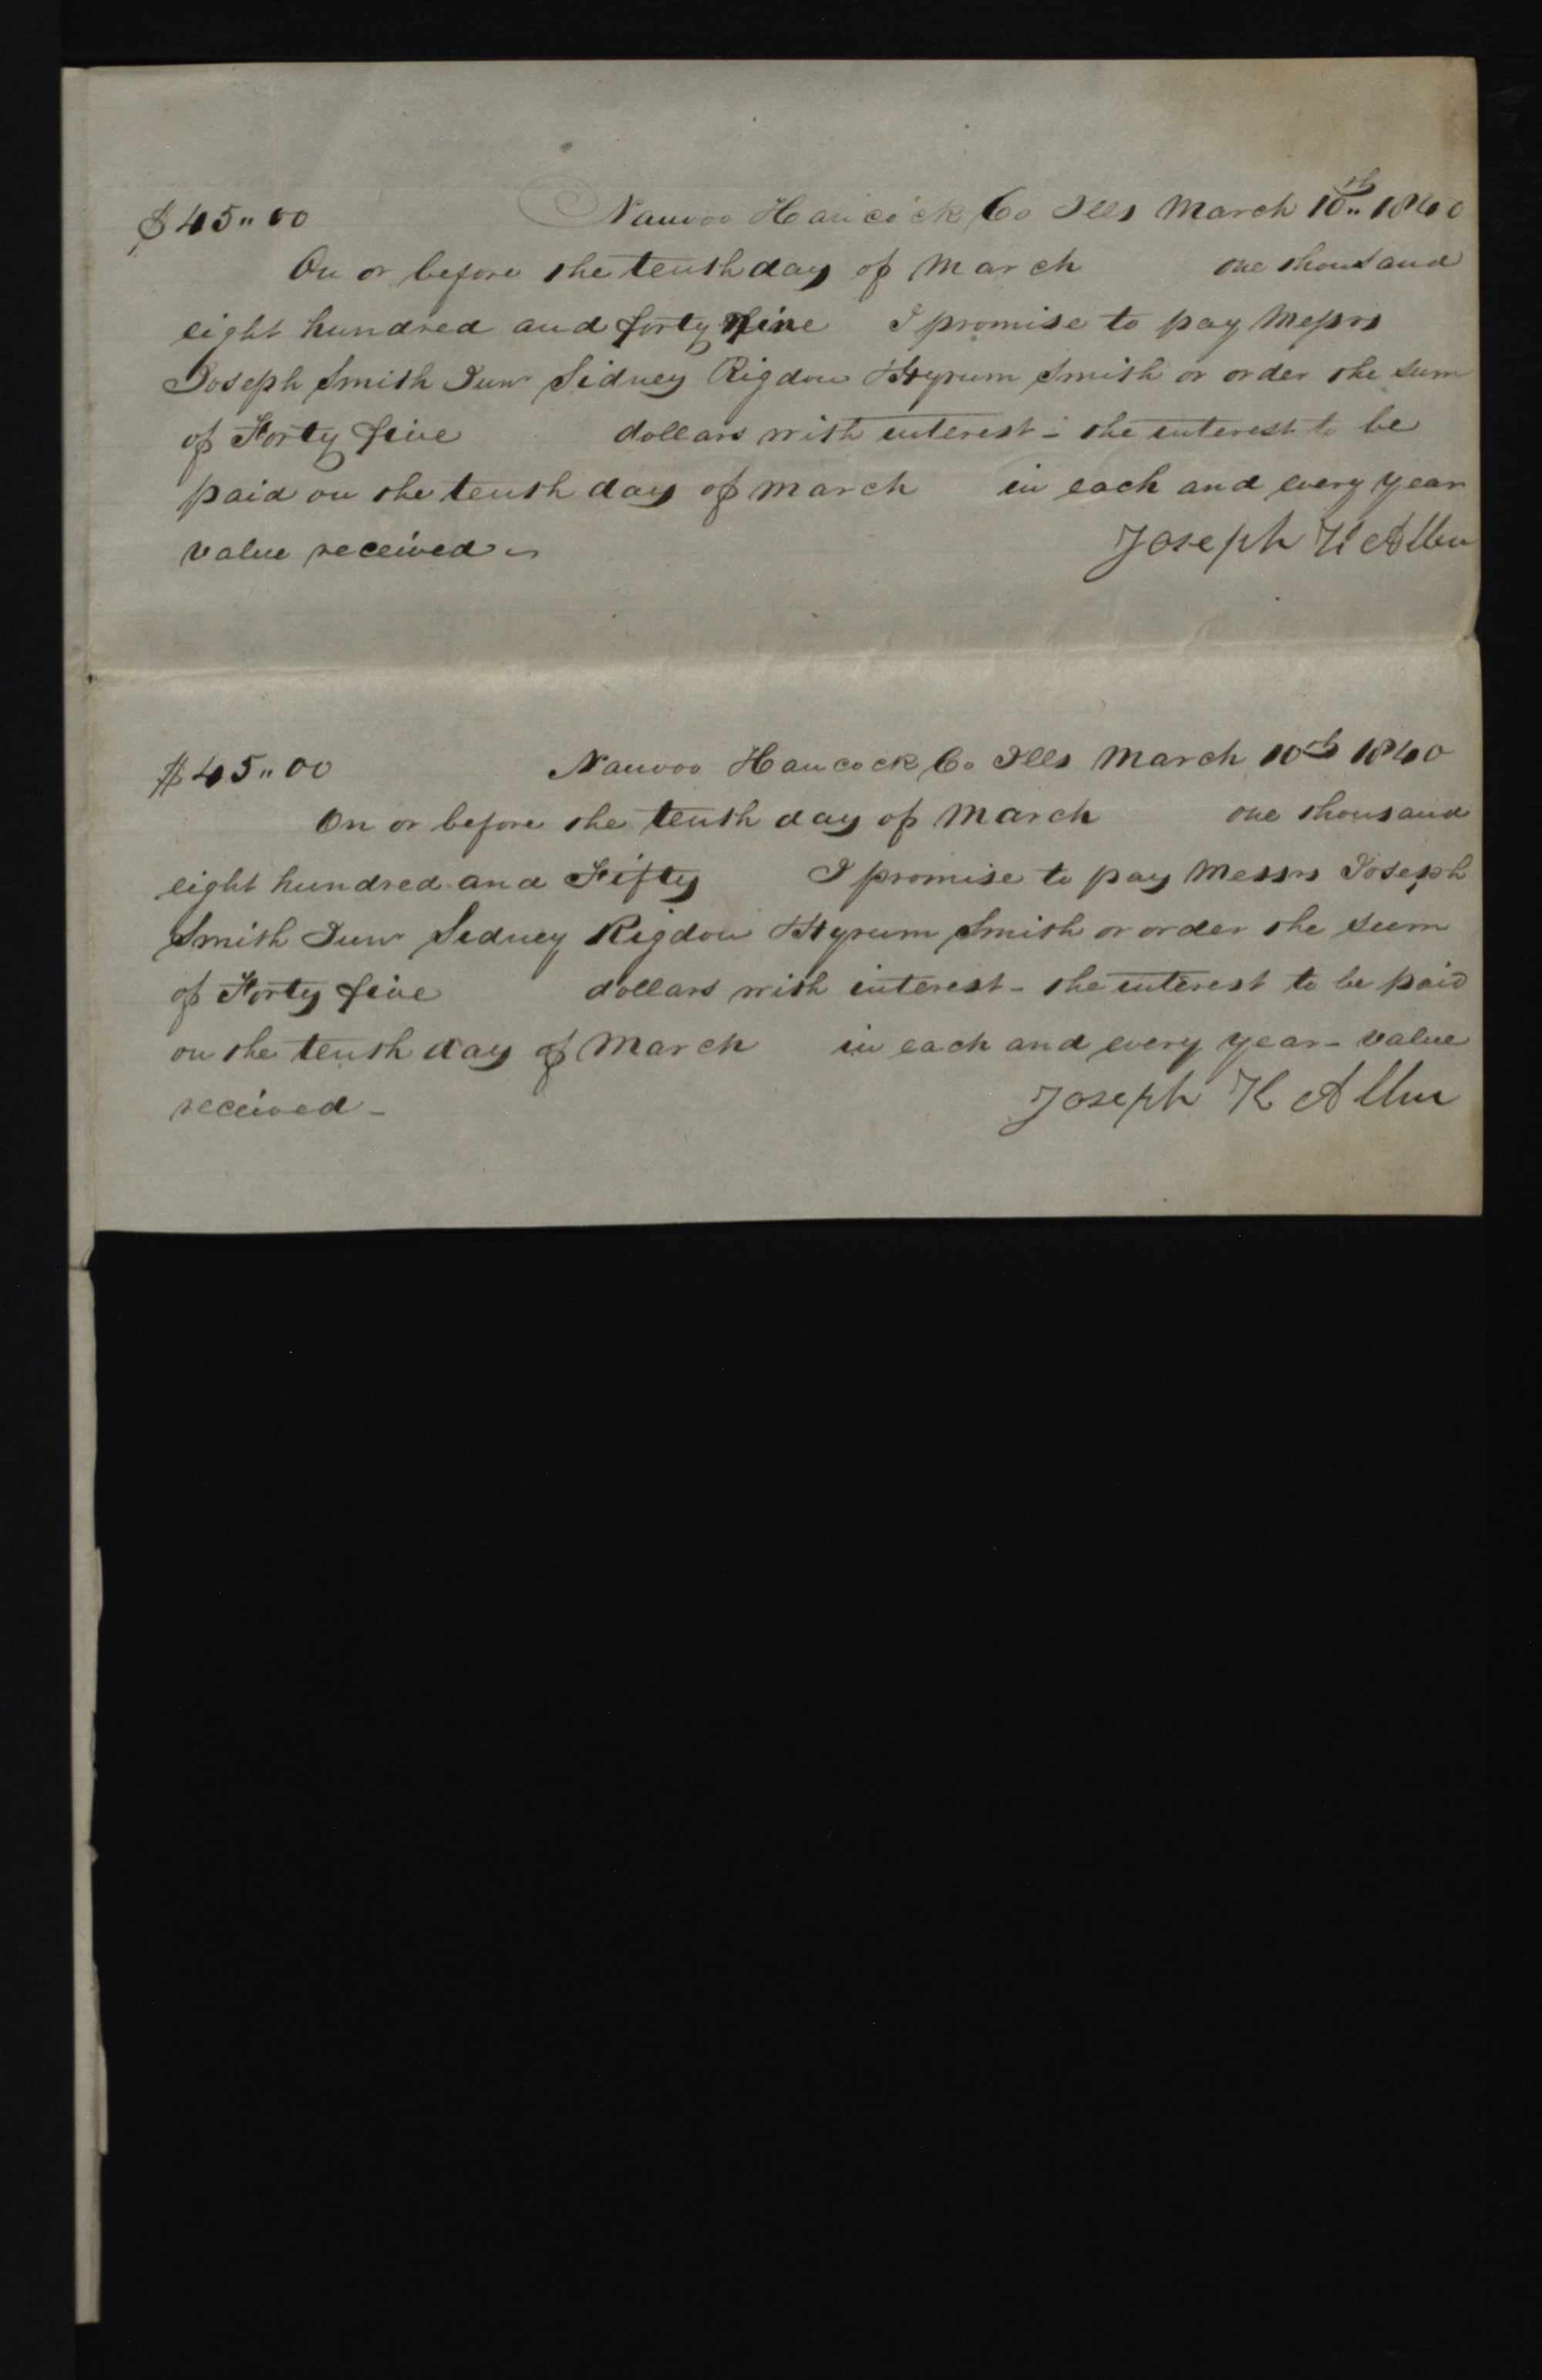 $45"00 Nauvoo Hancock Co Ills March 10th 1840
On or before the tenth day of March one thousand
eight hundred and forty Nine I promise to pay Messrs
Joseph Smith Junr Sidney Rigdon Hyrum Smith or order the sum
of Forty five dollars with interest - the interest to be
paid on the tenth day of March in each and every year
value received -
Joseph H Allen
$45"00 Nauvoo Hancock Co Ills March 10th 1840
On or before the tenth day of March one thousand
eight hundred and Fifty I promise to pay Messrs Joseph
Smith Junr Sidney Rigdon Hyrum Smith or order the sum
of Forty five dollars with interest - the interest to be paid
on the tenth day of March in each and every year - value
received -
Joseph H Allen